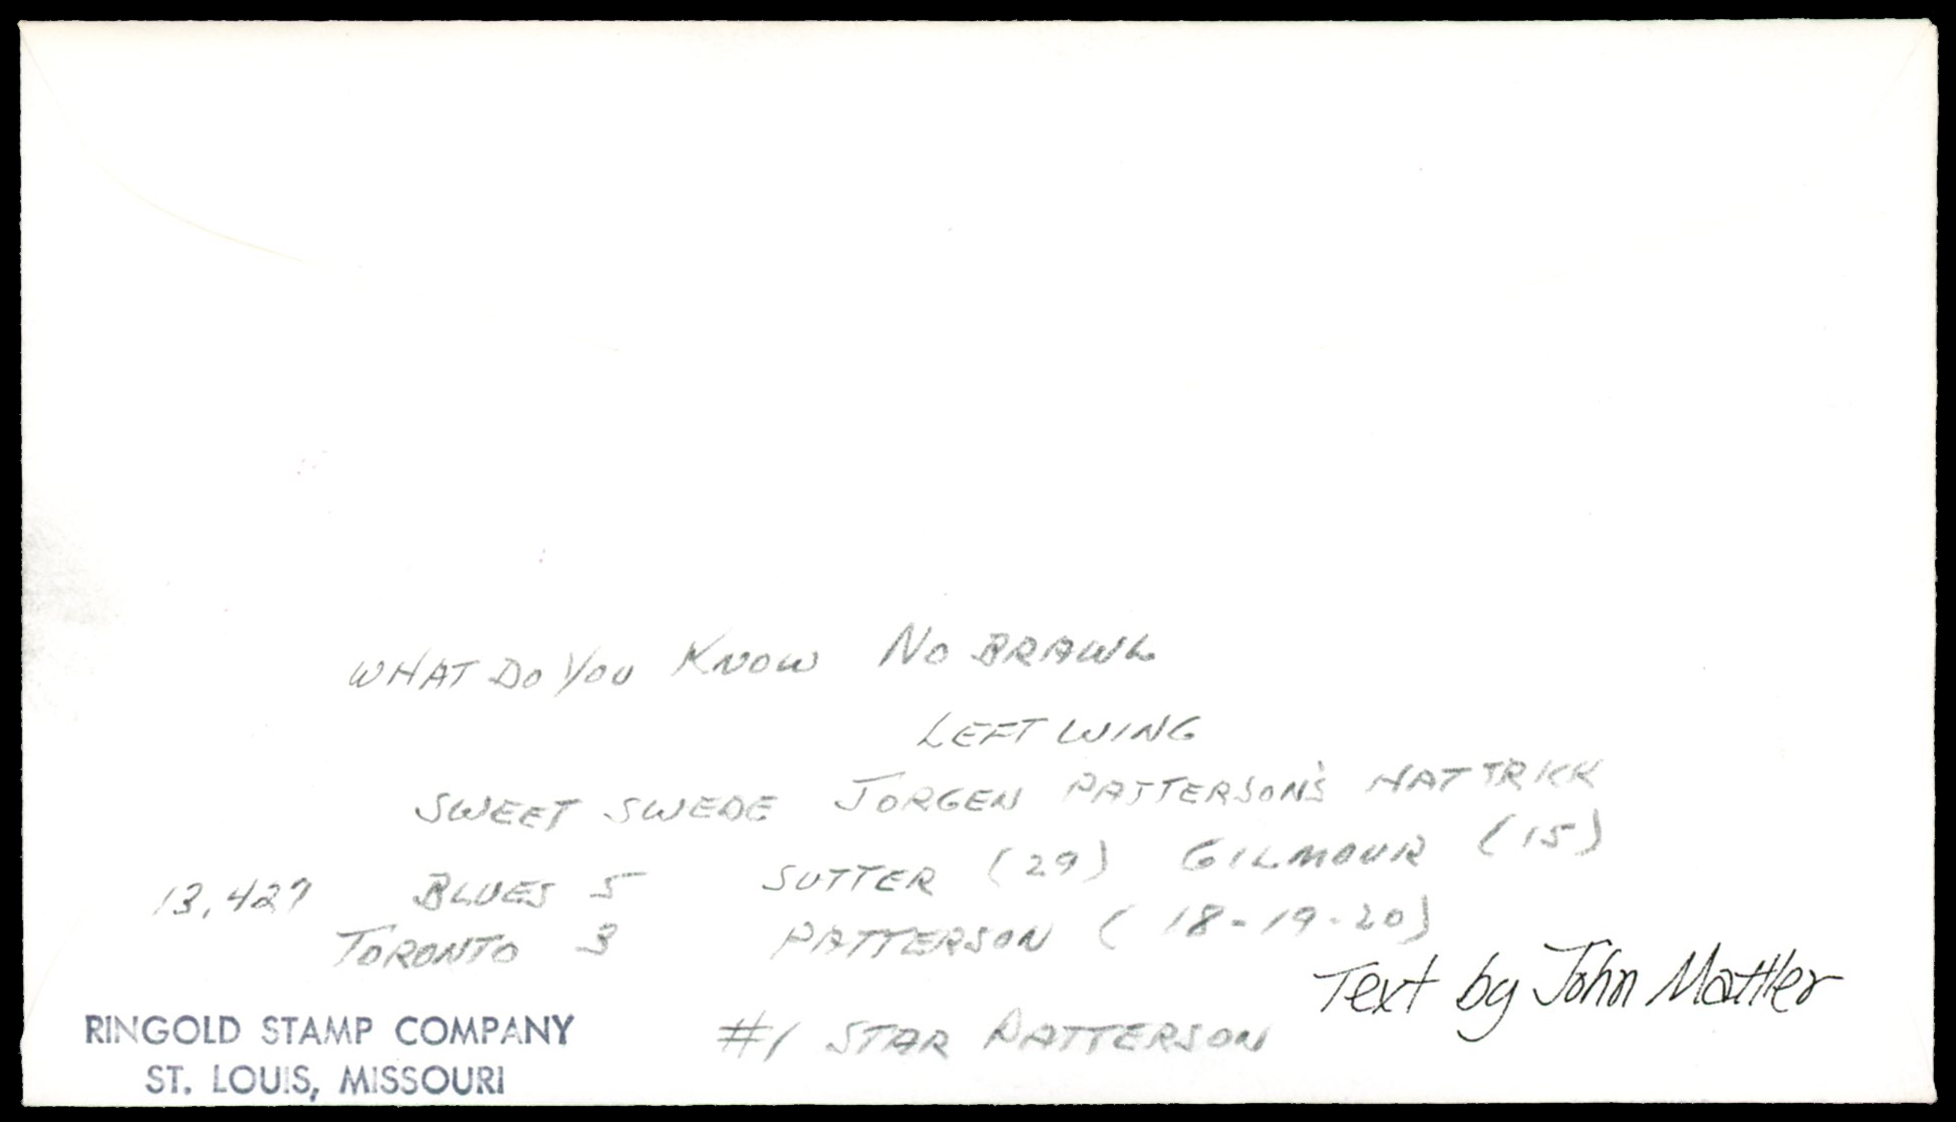 WHAT DO YOU KNOW NO BRAWL
LEFT WING
SWEET SWEDE JORGEN PATTERSON'S HAT TRICK
13,427 BLUES 5 SUTTER (29) GILMOUR (15)
TORONTO 3 PATTERSON (18-19-20)
Text by John Mattler
#1 STAR PATTERSON
RINGOLD STAMP COMPANY
ST. LOUIS, MISSOURI